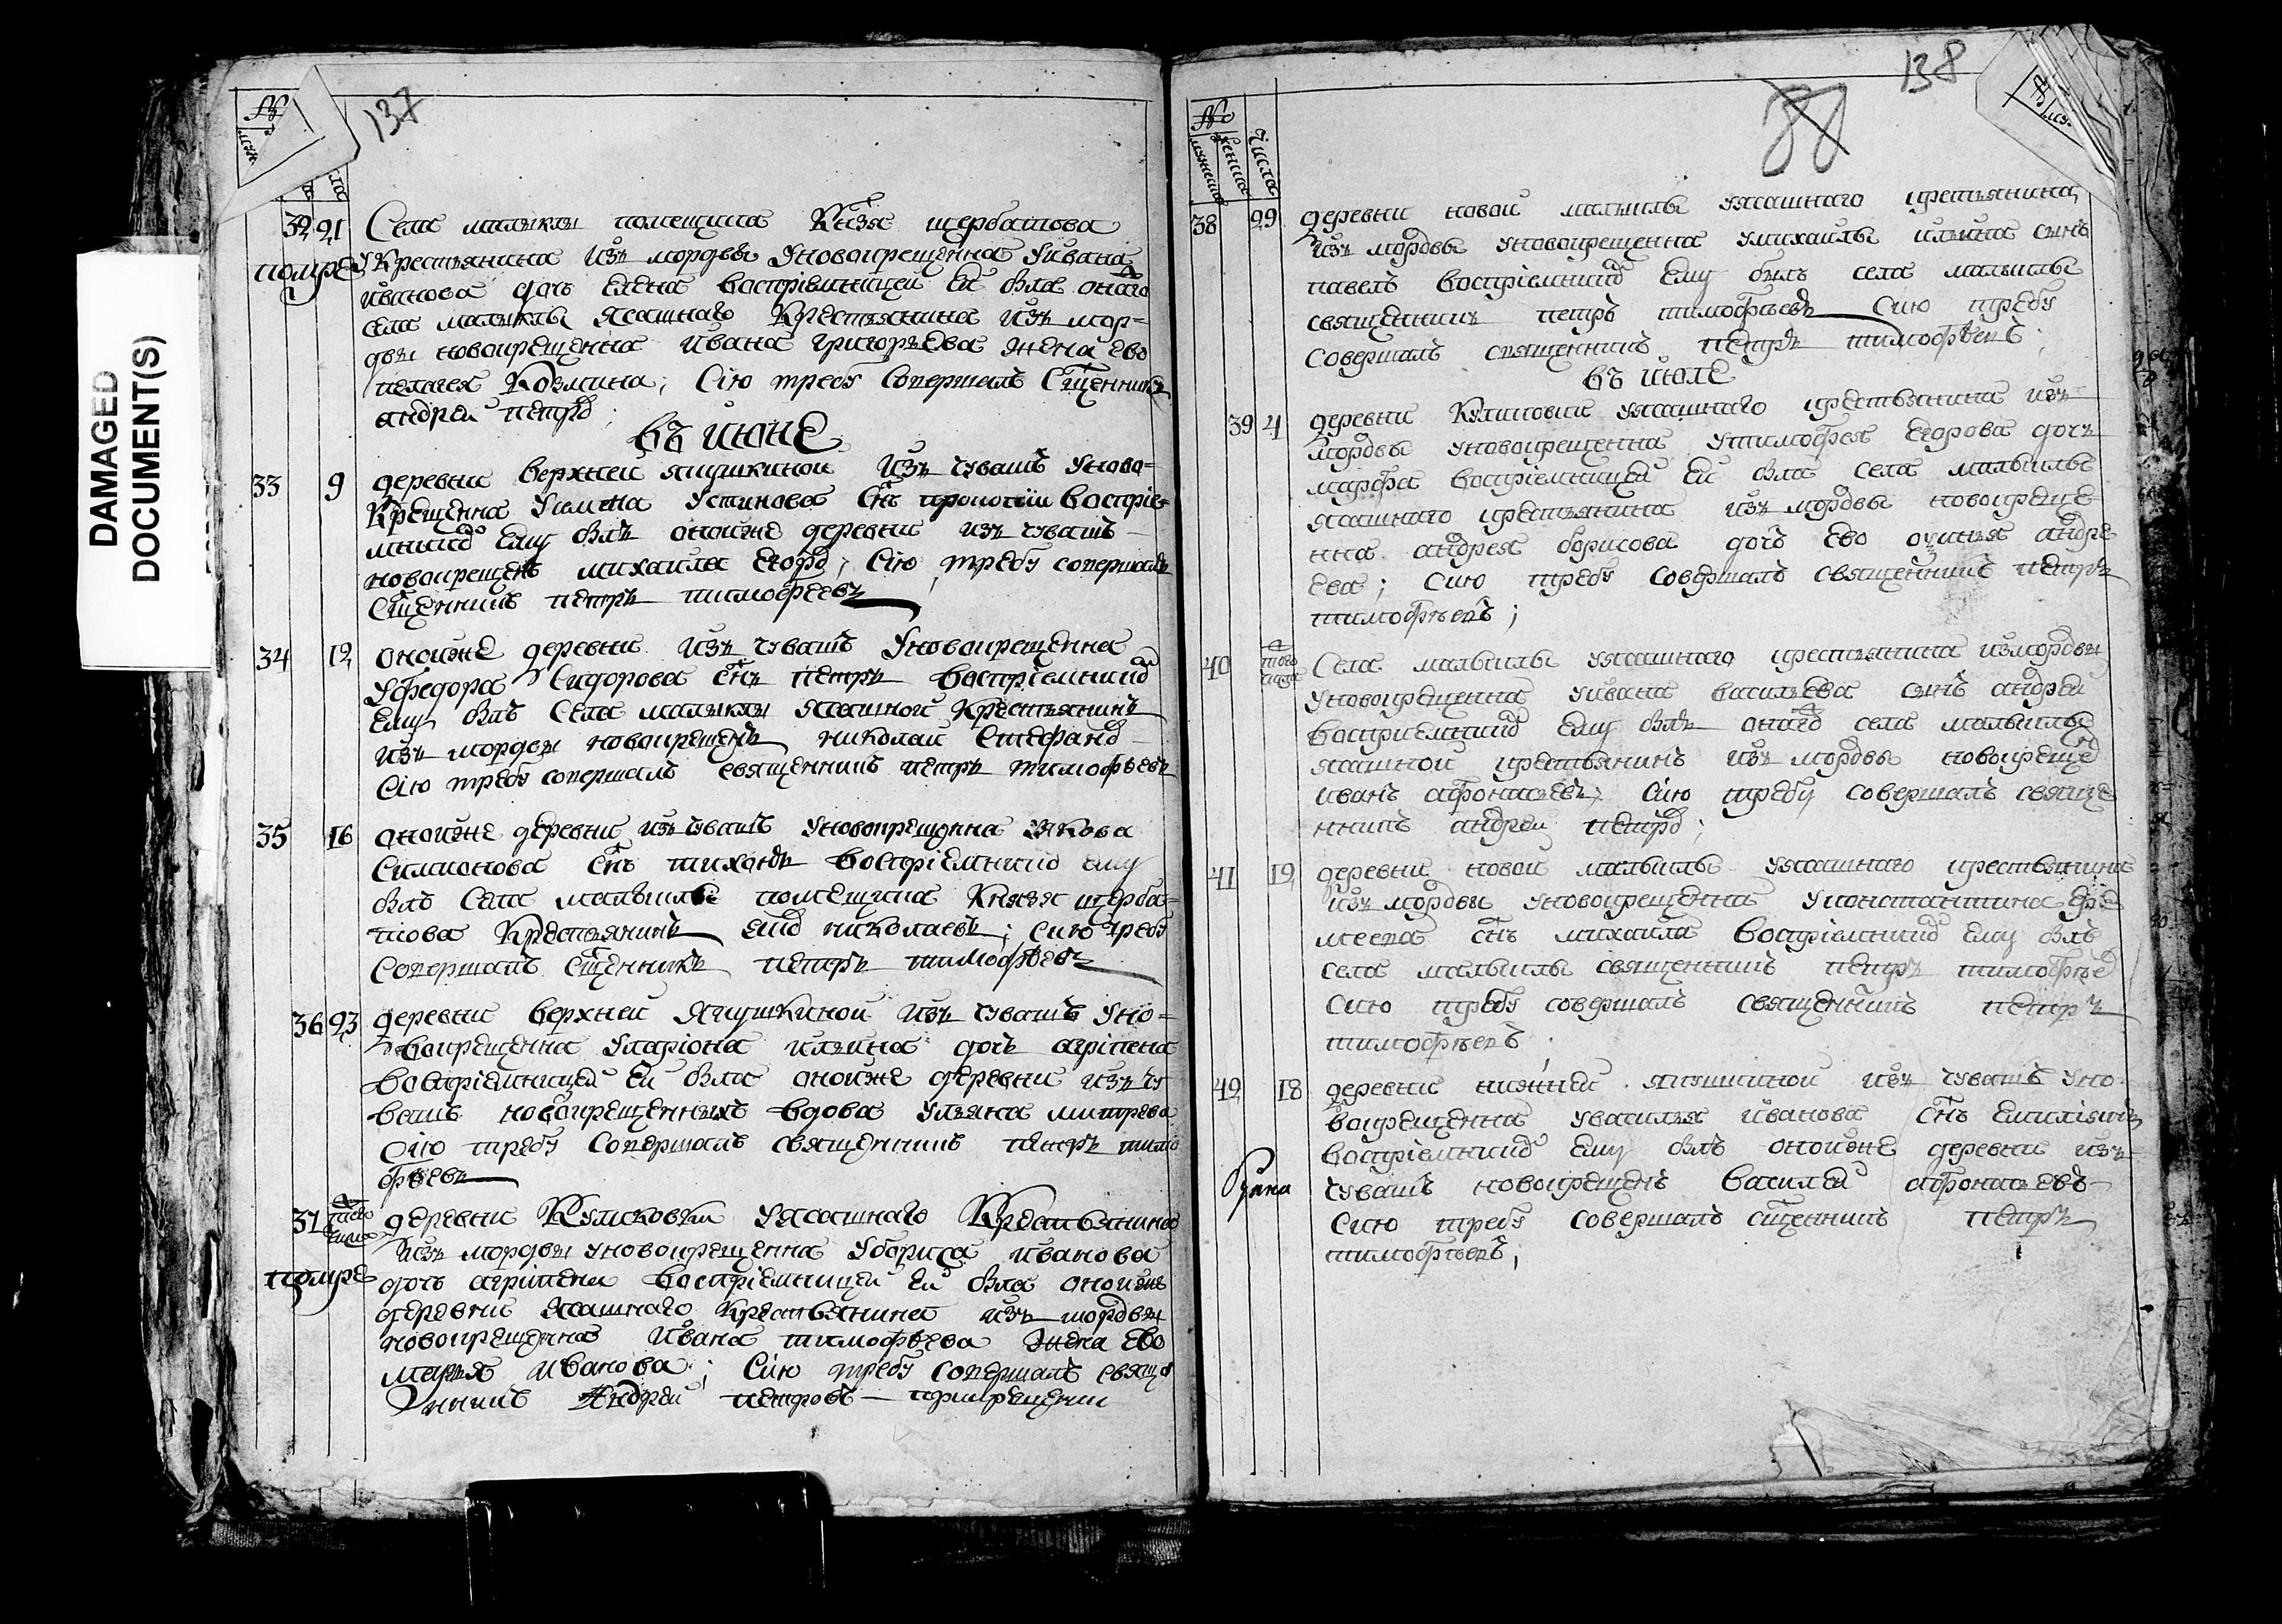 DAMAGED
DOCUMENT(S)
137
32 21 Села малыклы помещика Кнзя щербатова
помре
Укрестьянина изъ мордвы Уновокрещенна Уивана
иванова дочь елена восприемницей ей была онаго
села малыклы ясашнаго Крестьянина изъ мор=
двы новокрещенна ивана григорьева жена ево
пелагея Козмина; Сию требу совершалъ Сщенникъ
андреи петро;
въ июне
33 9 деревни верхней якушкиной изъ чувашъ Уново=
Крещенна Устинова Снъ восприе=
мникъ ему былъ онойже деревни изъ чувашъ
новокрещенъ михаила егоро; Сию требу совершалъ
Сщенникъ петръ тимофеевъ
34 12 онойже деревни изъ чувашъ Уновокрещенна
Уфедора Сидорова Снъ петръ восприемнико
ему былъ Села малыклы ясашной Крестьянинъ
изъ мордвы новокрещенъ николай Стефано
Сию требу совершалъ священникъ петръ тимофеевъ
35 16 онойже деревни изъ чувашъ Уновокрещенна якова
Симионова Снъ тихонъ восприемнико ему
былъ Села малыклы помещика Князя щерба=
това Крестьянинъ николаевъ; Сию требу
Совершалъ Сщенникъ петръ тимофеевъ
36 23 деревни верхней якушкиной изъ чувашъ Уно=
вокрещеннаУлариона ильина дочь агрипена
восприемницей ей была онойже деревни изъ чу
вашъ новокрещенныхъ вдова ульяна митрева
Сию требу Совершалъ священникъ петръ тимо
феевъ
37 того числа деревни Куликовки Уясашнаго Крестьянина
изъ мордвы уновокрещенна Убориса иванова
помре
дочь агрипена восприемницей ей была онойже
деревни ясашнаго Крестьянина изъ мордвы
новокрещенна ивана тимофеева жена ево
марья иванова; Сию требу совершалъ свяще
нникъ Андрей петровъ — прикрещении
138
38
числа
38 29 деревни новой малыклы уясашнаго крестьянина
изъ мордвы уновокрещенна умихайлы ильина сынъ
павелъ восприемнико ему былъ села малыклы
священникъ петръ тимофеевъ Сию требу
Совершалъ священникъ петръ тимофеевъ;
въ июле
39 4 деревни Куликовки уясашнаго крестьянина изъ
мордвы уновокрещенна утимофея егорова дочь
марфа восприемницей ей была села малыклы
ясашнаго крестьянина изъ мордвы новокреще
нна андрея борисова дочь ево андре
ева; Сию требу Совершалъ священникъ петръ
тимофеевъ;
40 того числа Села малыклы уясашнаго крестьянина измордвы
уновокрещенна уивана васильева сынъ андрей
восприемнико ему былъ онаго села малыклы
ясашной крестьянинъ изъ мордвы новокреще
иванъ афонасьевъ; Сию требу совершалъ свяще
нникъ андрей петро;
41 12 деревни новой малыклы уясашнаго крестьянина
изъ мордвы уновокрещенна уконстантина ере
меева Снъ михаила восприемнико ему былъ
села малыклы священникъ петръ тимофее
Сию требу совершалъ священникъ петръ
тимофеевъ;
42 18 деревни нижней якушкиной изъ чувашъ уно
вокрещенна увасилья иванова Снъ емилианъ
восприемнико ему былъ онойже деревни изъ
чувашъ новокрещенъ василей афонасьевъ
Сию требу совершалъ Сщенникъ петръ
тимофеевъ;